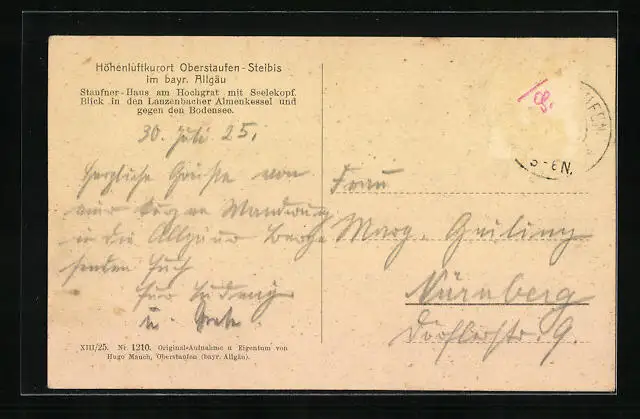 Höhenluftkurort Oberstaufen-Steibis
im bayr. Allgäu
Staufner-Haus am Hochgrat mit Seelekopf.
Blick in den Lanzenbacher Almenkessel und
gegen den Bodensee.
30. Juli 25.
Herzliche Grüße von
einer kurzen Wanderung
in die Allgäuer Berge
senden Euch
u.
XIII/25. Nr. 1210. Original-Aufnahme u Eigentum von
Hugo Mauch, Oberstaufen (bayr. Allgäu).
5-6N.
Frau
Marg. Geiling
Nürnberg
Dörflerstr. 9.